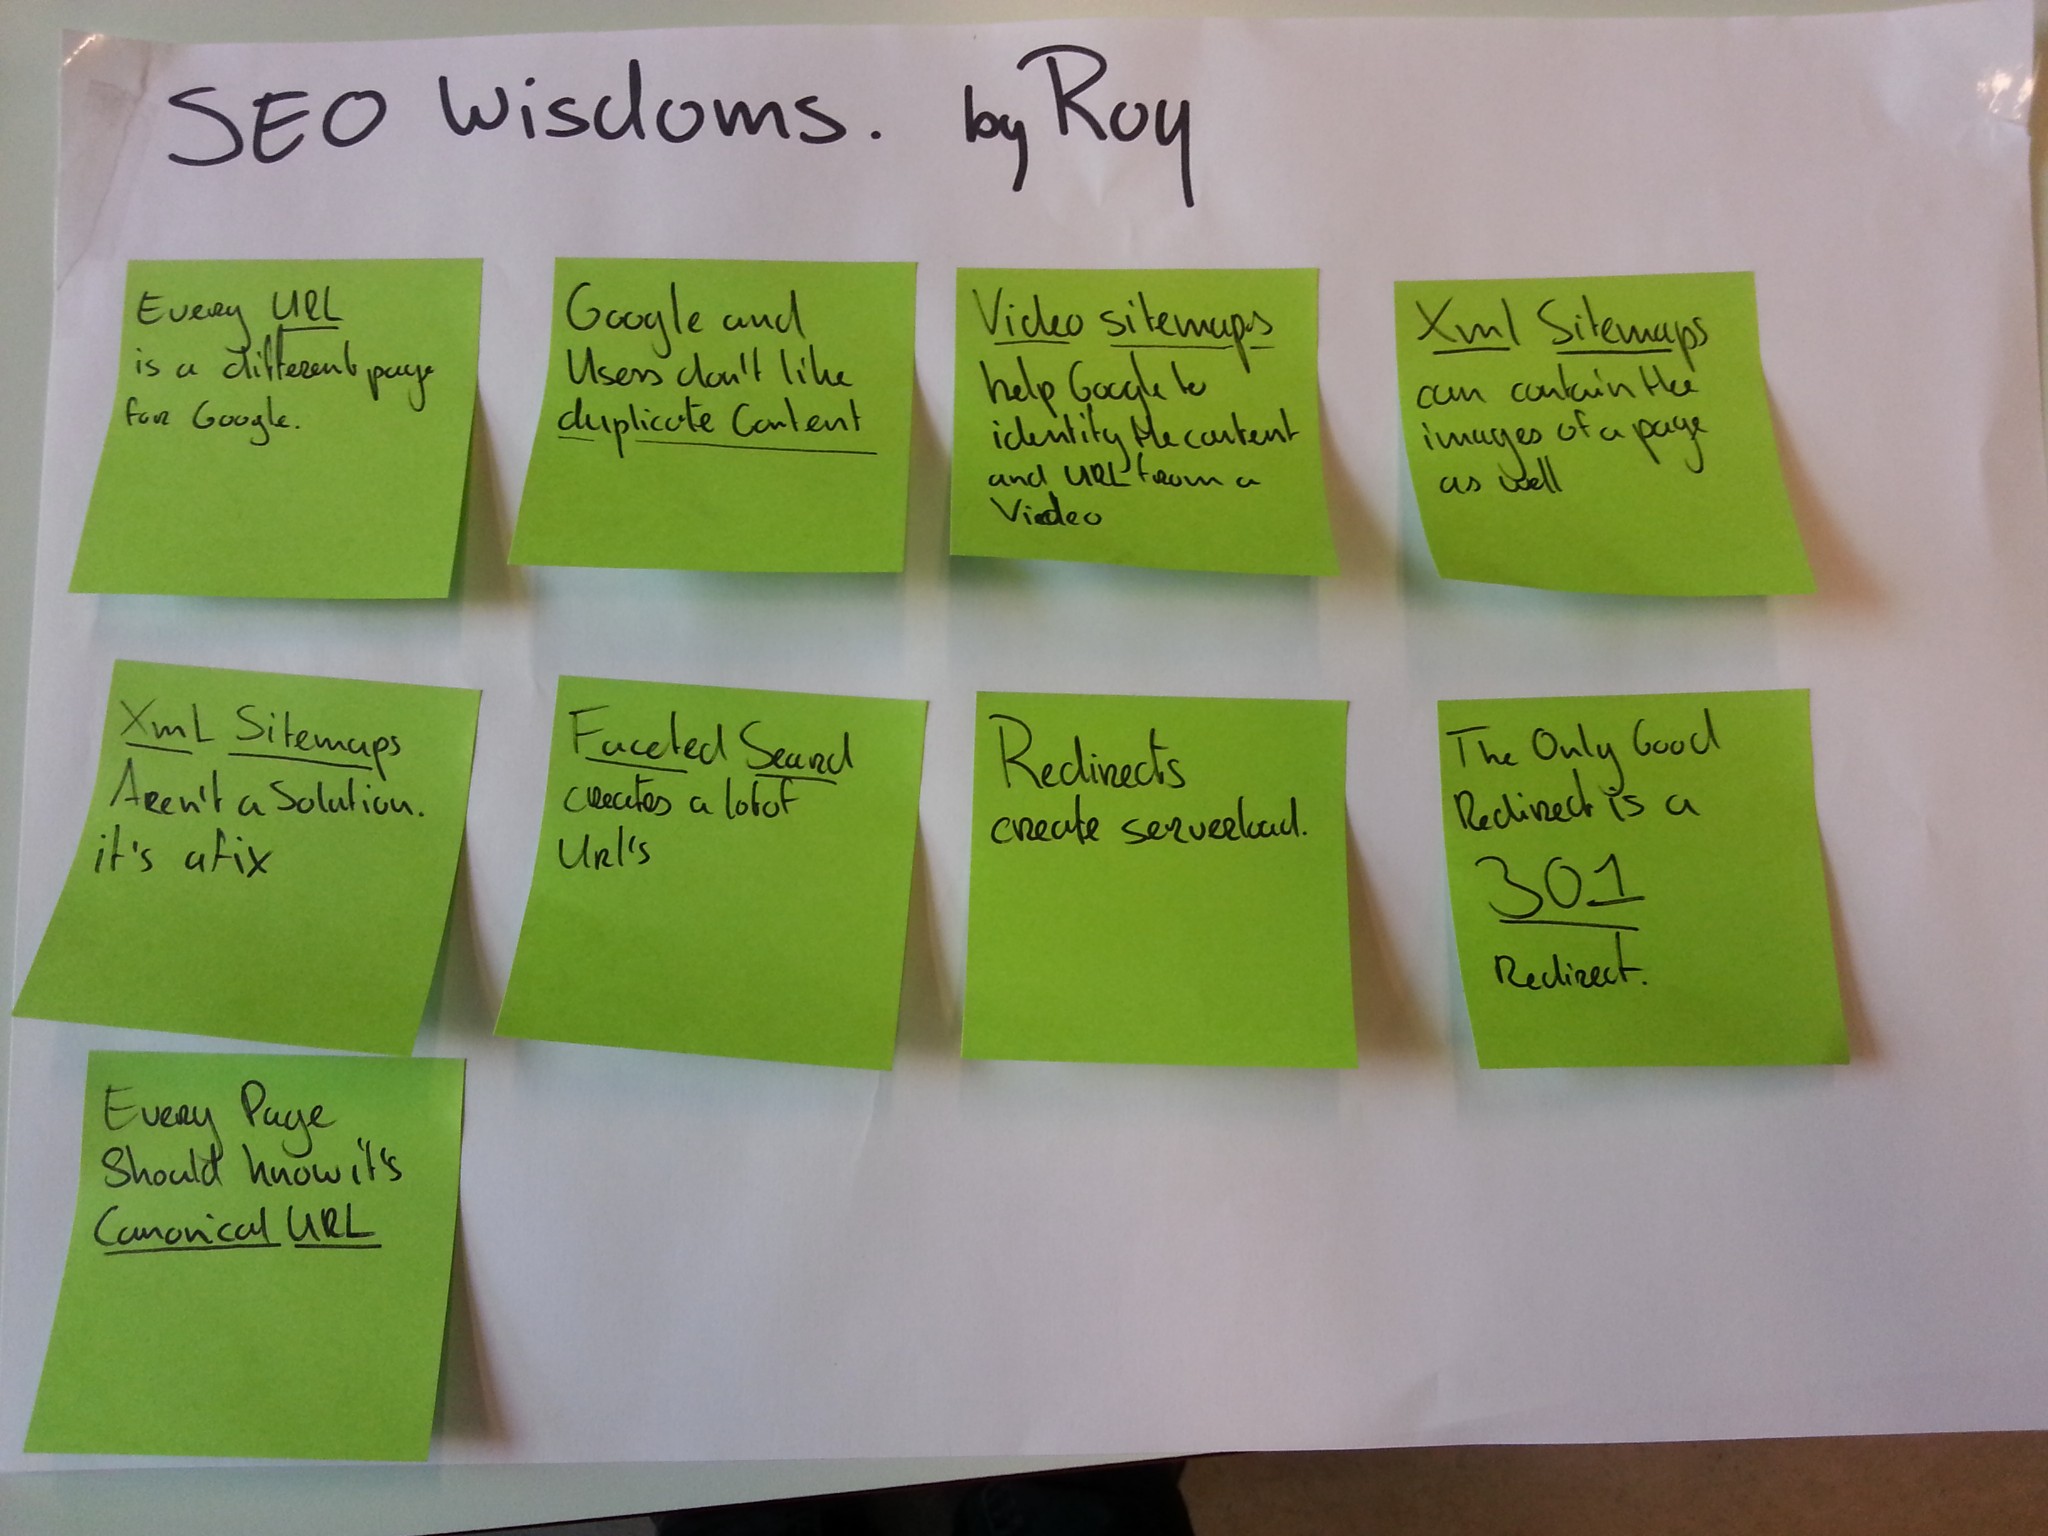 SEO Wisdoms. by Roy
Every URL
is a different page
for Google.
Google and
Users don't like
duplicate Content
Video sitemaps
help Google to
identify the content
and URL from a
Video
Xml Sitemaps
can contain the
images of a page
as well
XmL Sitemaps
Aren't a Solution.
it's a fix
Faceted Search
creates a lot of
Url's
Redirects
create serverload.
The Only Good
Redirect is a
301
Redirect.
Every Page
Should know it's
Canonical URL